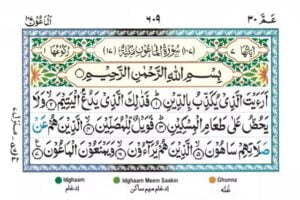 عَمَّ ٣٠ ٦٠٩ اَلْمَاعُوْن ١٠٧
اٰيَاتُهَا ٧ (١٠٧) سُوْرَةُ الْمَاعُوْنِ مَكِّيَّةٌ (١٧) رُكُوْعُهَا ١
بِسْمِ اللّٰهِ الرَّحْمٰنِ الرَّحِيْمِ
اَرَءَيْتَ الَّذِيْ يُكَذِّبُ بِالدِّيْنِ ۝ فَذٰلِكَ الَّذِيْ يَدُعُّ الْيَتِيْمَ ۝ وَلَا
يَحُضُّ عَلٰى طَعَامِ الْمِسْكِيْنِ ۝ فَوَيْلٌ لِّلْمُصَلِّيْنَ ۝ الَّذِيْنَ هُمْ عَنْ
صَلَاتِهِمْ سَاهُوْنَ ۝ الَّذِيْنَ هُمْ يُرَآءُوْنَ ۝ وَيَمْنَعُوْنَ الْمَاعُوْنَ ۝
Idghaam Idghaam Meem Saakin Ghunna
ادغام ادغام میم ساکن غنہ